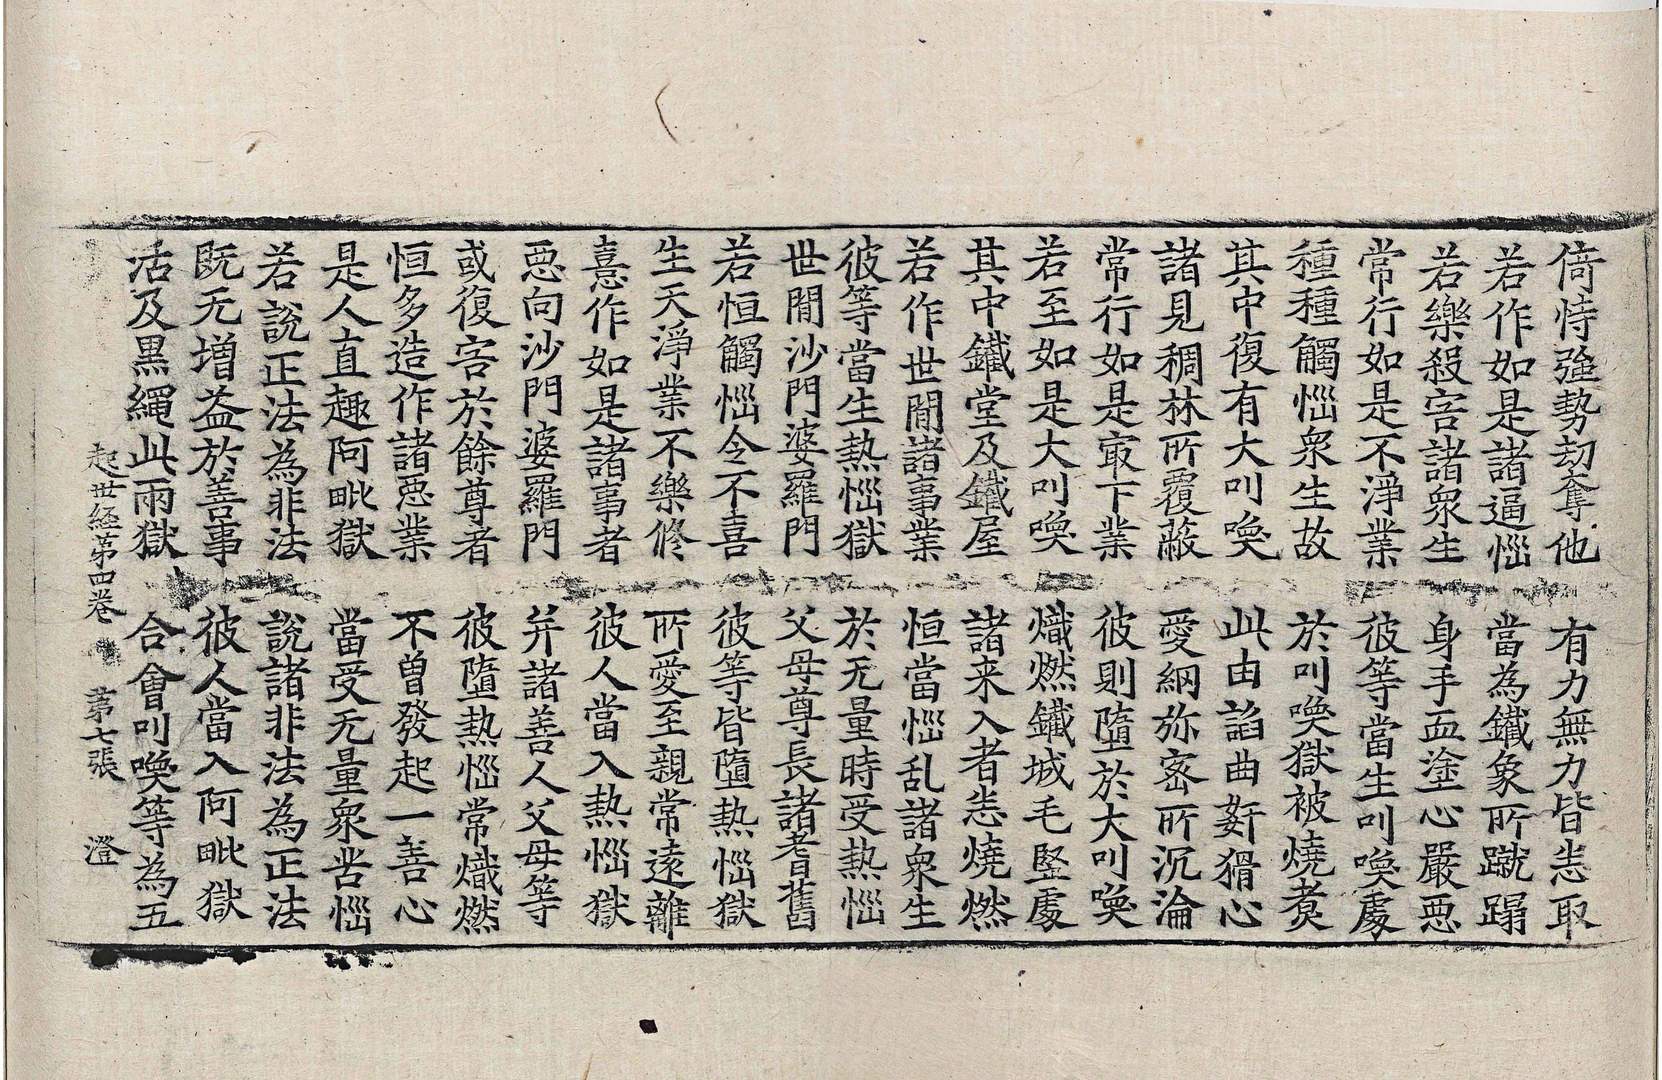 倚恃强勢劫奪他　有力無力皆恙取
若作如是諸逼惱　當為鐵象所蹴蹋
若樂殺害諸衆生　身手血塗心嚴惡
常行如是不淨業　彼等當生叫喚處
種種觸惱衆生故　於叫喚獄被燒煑
其中復有大叫喚　此由諂曲姧猾心
諸見稠林所覆蔽　愛網弥密所沉淪
常行如是㝡下業　彼則墮於大叫喚
若至如是大叫喚　熾燃鐵城毛竪處
其中鐵堂及鐵屋　諸来入者恙燒燃
若作世間諸事業　恒當惱乱諸衆生
彼等當生熱惱獄　於无量時受熱惱
世間沙門婆羅門　父母尊長諸耆舊
若恒觸惱令不喜　彼等皆墮熱惱獄
生天淨業不樂修　所愛至親常遠離
憙作如是諸事者　彼人當入熱惱獄
惡向沙門婆羅門　并諸善人父母等
或復害於餘尊者　彼墮熱惱常熾燃
恒多造作諸惡業　不曽發起一善心
是人直趣阿毗獄　當受无量衆苦惱
若說正法為非法　說諸非法為正法
既无增益於善事　彼人當入阿毗獄
活及黒繩此兩獄　合會叫喚等為五
起世経第四卷　第七張　澄